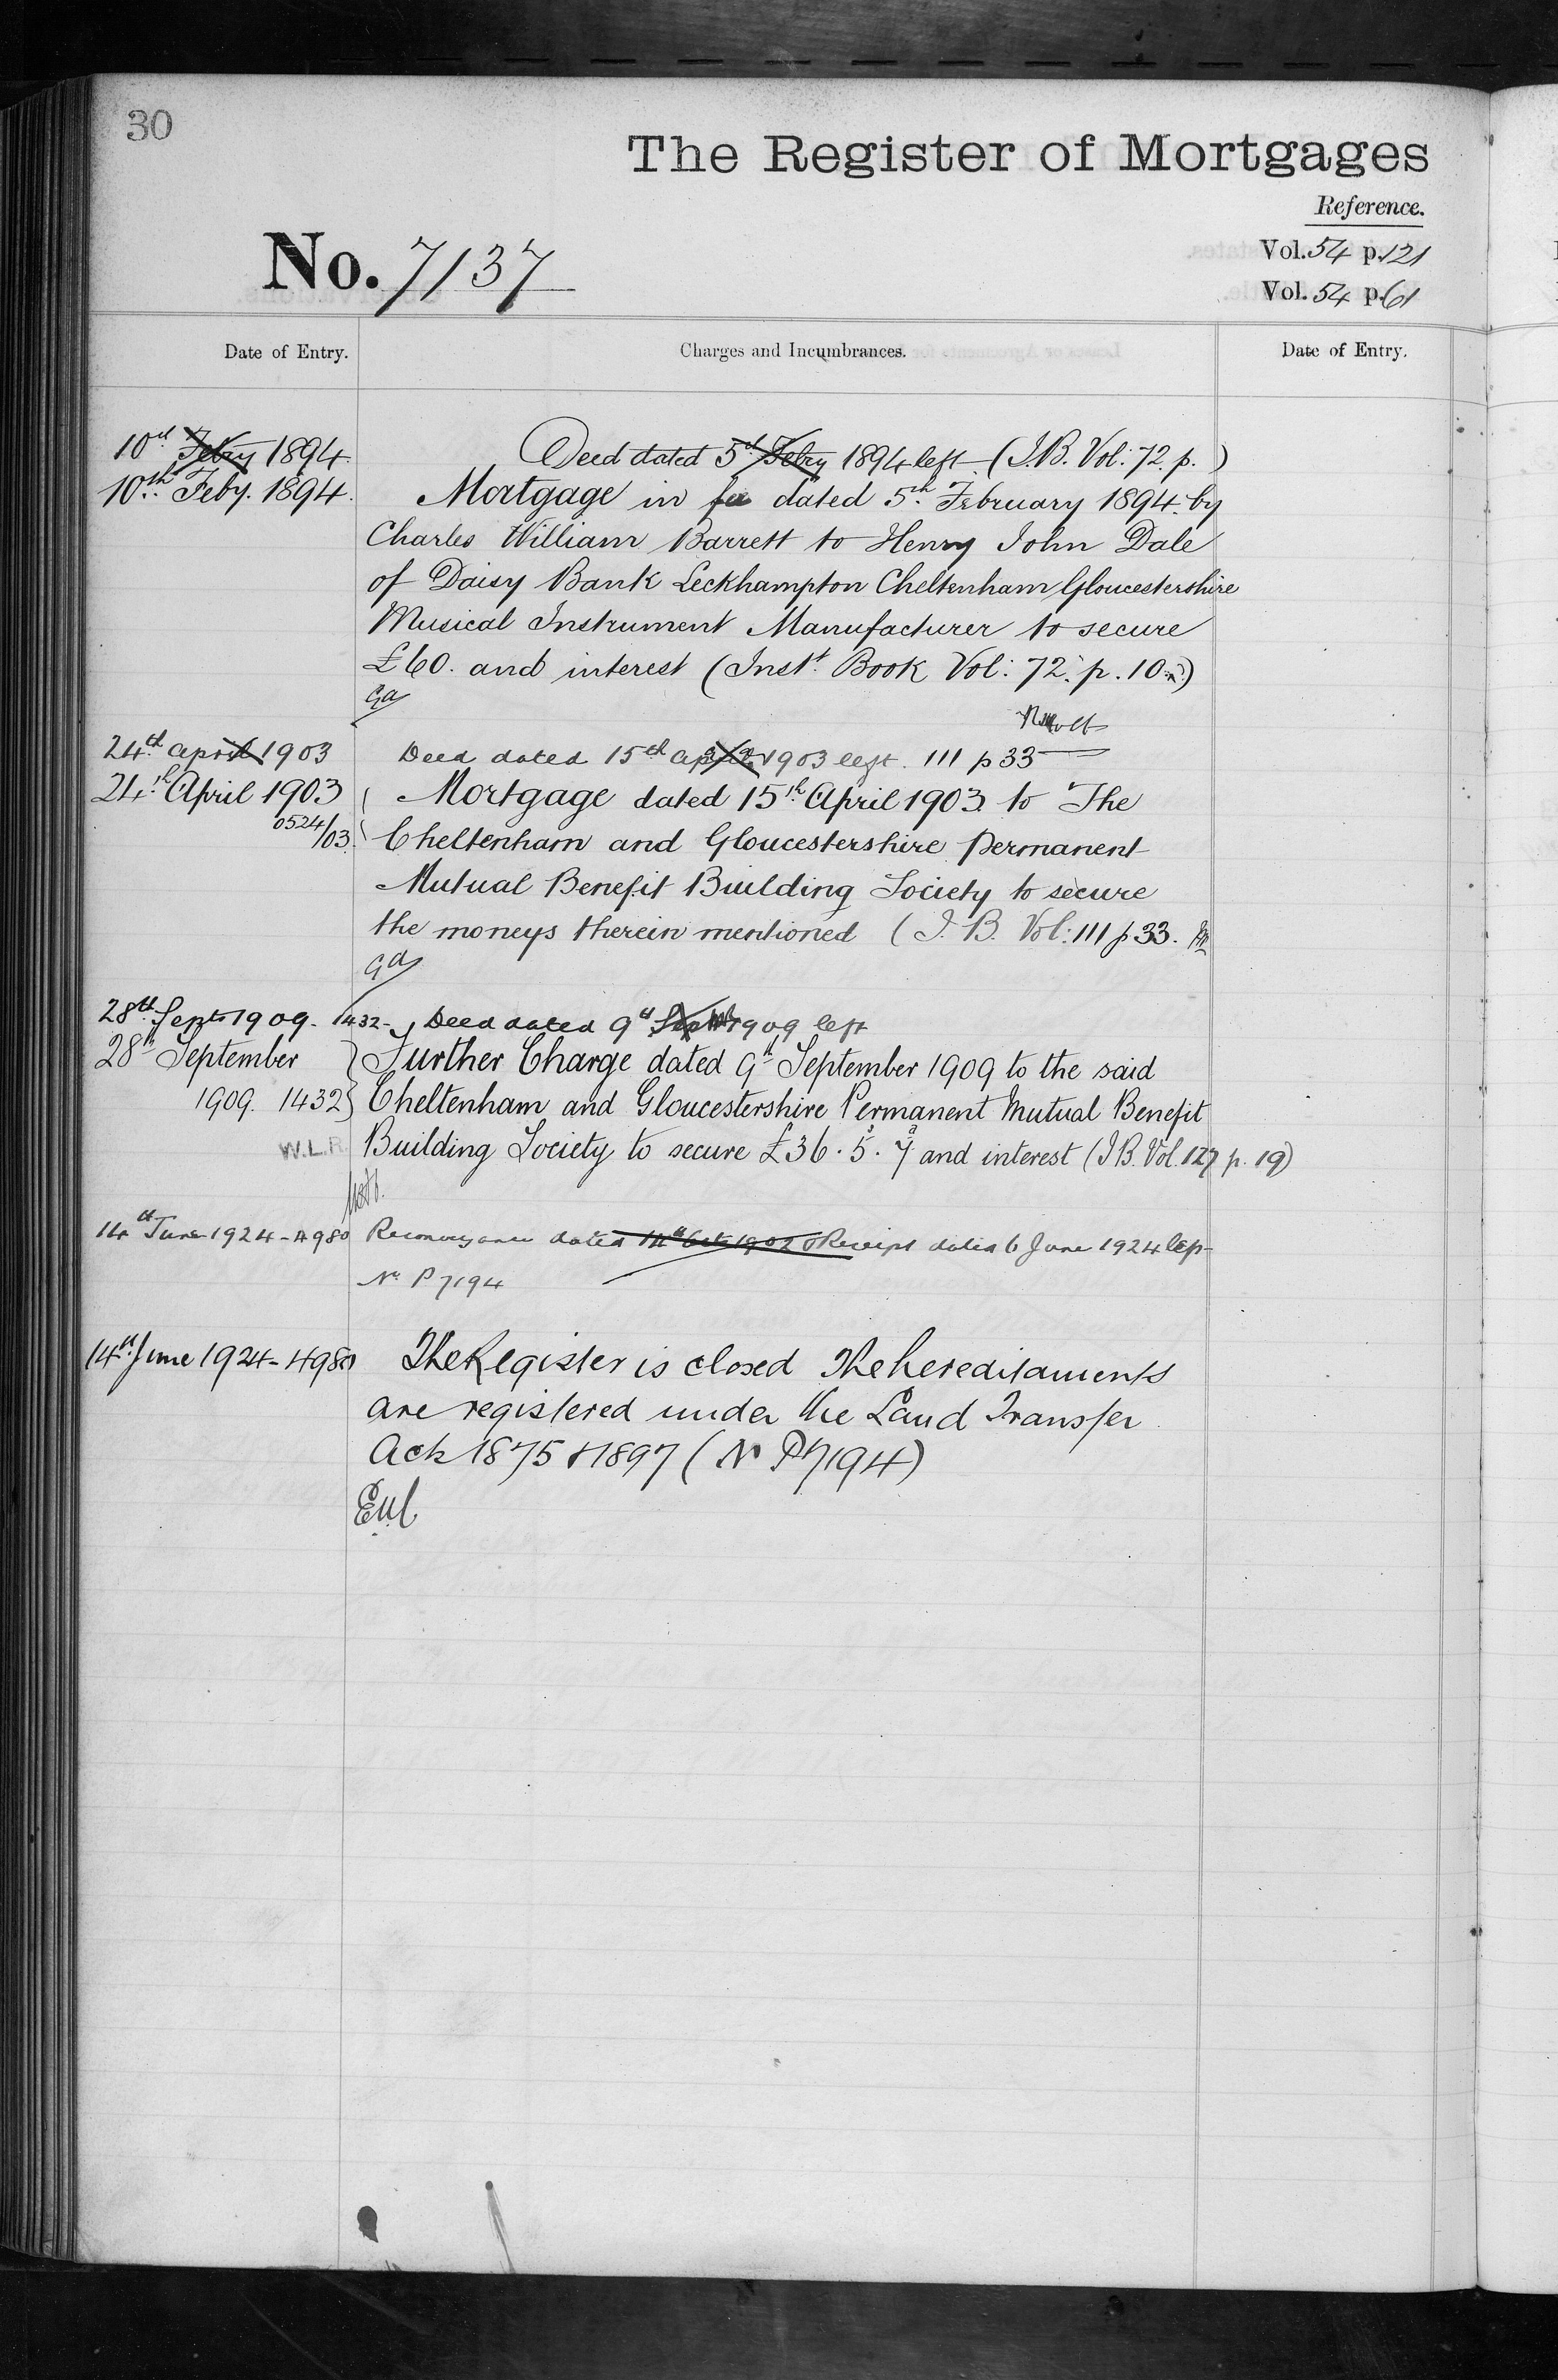 30
The Register of Mortgages
Reference.
No. 7137
Vol. 54 p. 121
Vol. 54 p. 61
Date of Entry. Charges and Incumbrances. Date of Entry.
10th Febry 1894 Deed dated 5th Febry 1894 left (I.B. Vol: 72. p. )
10th Feby. 1894. Mortgage in fee dated 5th February 1894 by
Charles William Barrett to Henry John Dale
of Daisy Bank Leckhampton Cheltenham Gloucestershire
Musical Instrument Manufacturer to secure
£60. and interest (Inst. Book Vol: 72. p. 10)
Ga
24th April 1903 Deed dated 15th April 1903 left. 111 p 33
24th April 1903 Mortgage dated 15th April 1903 to The
0524/03. Cheltenham and Gloucestershire Permanent
Mutual Benefit Building Society to secure
the moneys therein mentioned (I. B. Vol: 111 p 33.
Ga
28th Sept 1909. 1432 - Deed dated 9th Sept 1909 left
28th September Further Charge dated 9th September 1909 to the said
1909. 1432 Cheltenham and Gloucestershire Permanent Mutual Benefit
W.L.R. Building Society to secure £36. 5s. 7d and interest (I B. Vol. 127 p. 19)
14th June 1924 - 4980 Reconveyance dated 14th Oct 1902 & Receipt dated 6 June 1924 left
No P 7194
14th June 1924 - 4980 The Register is closed The hereditaments
are registered under the Land Transfer
Acts 1875 & 1897 (No P 7194)